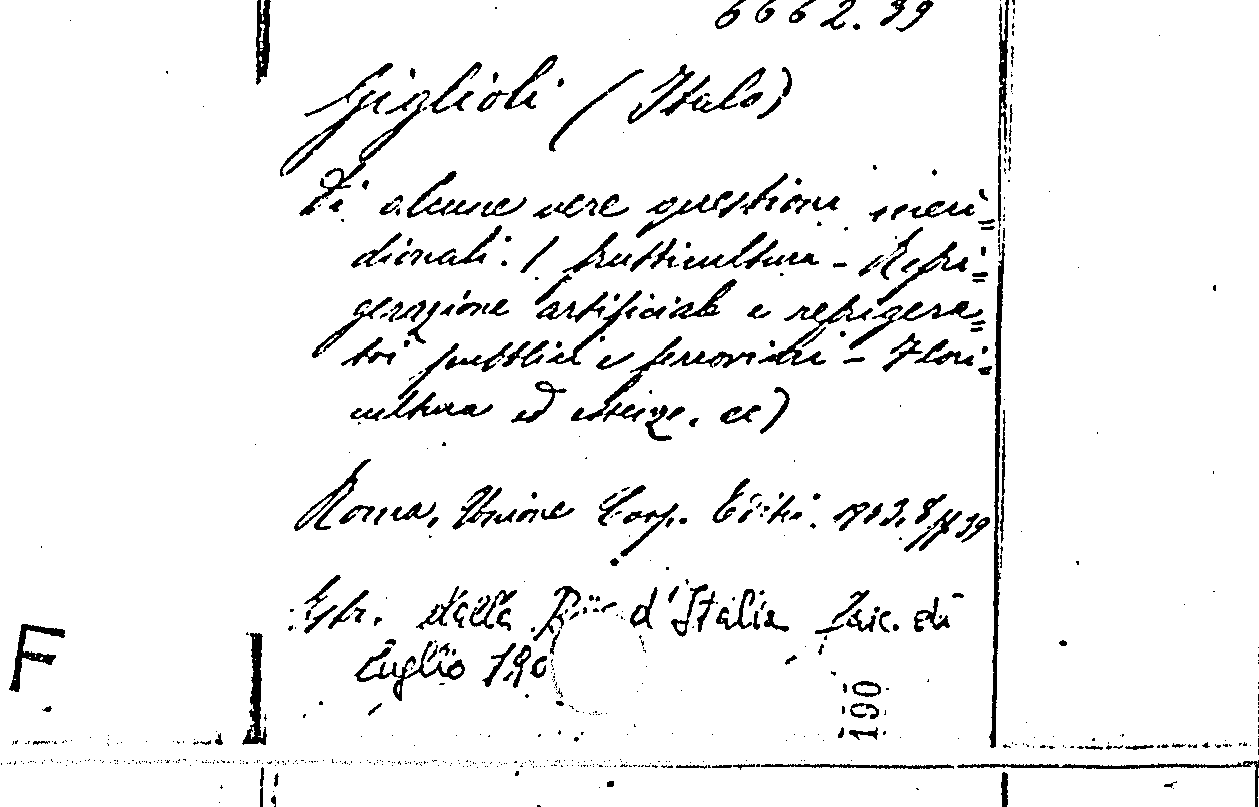 6662.39
Giglioli (Italo)
Di alcune vere questioni meri=
dionali. ( Frutticultura - Refri=
gerazione artificiale e refrigera=
tori pubblici e ferroviari - Flori=
cultura ed essenze, ec)
Roma, Unione Coop. Editr. 1903. 8/ 39
Estr. dalla Riv. d'Italia fasc. di
Luglio 190
190
F